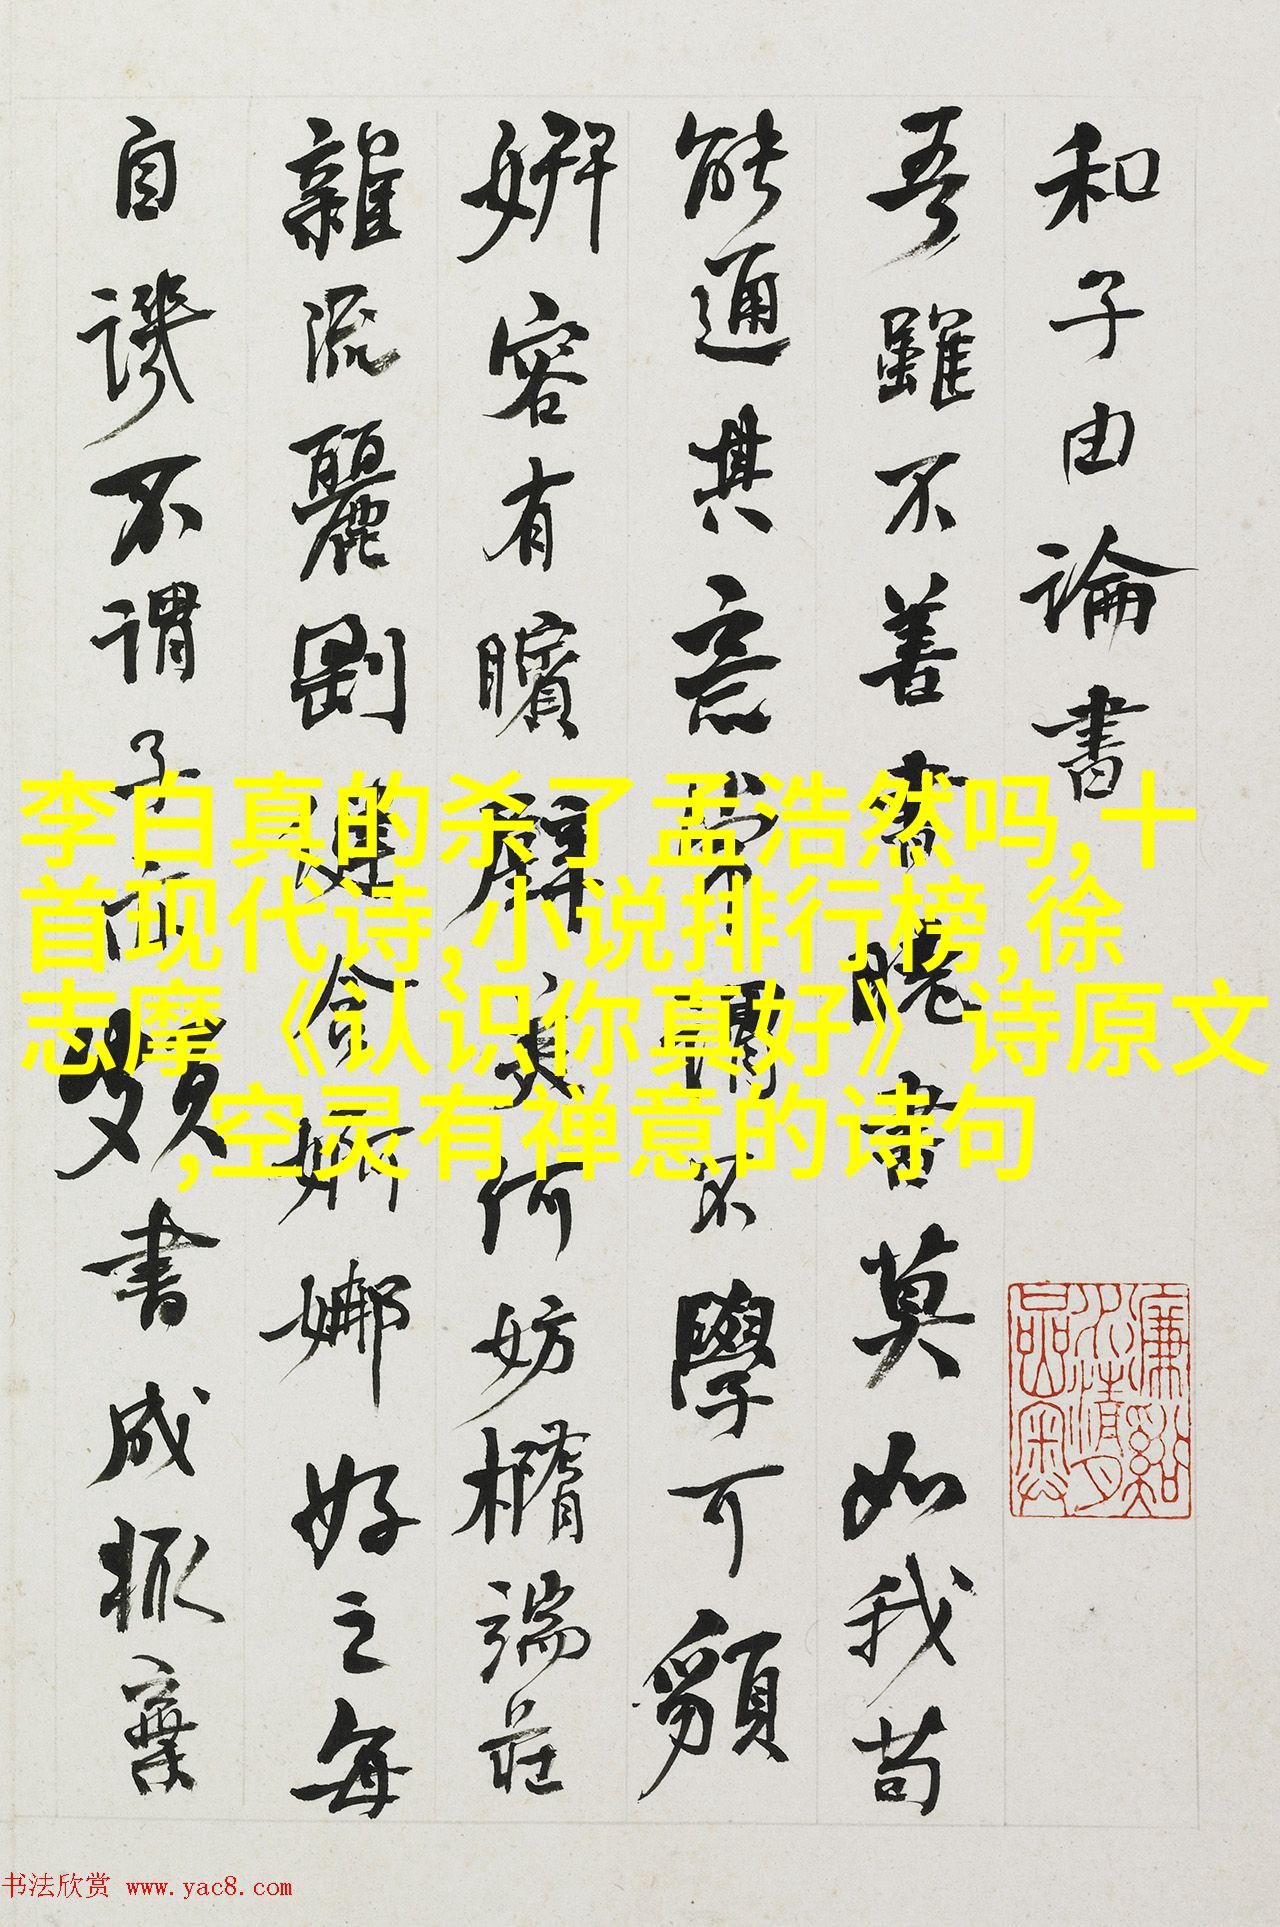 和子由論書
吾雖不善書曉書莫如我苟
能通其意常謂不學可貌
妍容有矉璧美何妨橢端莊
雜流麗剛健含婀娜好之每
自譏不謂子亦頗書成輒棄
李白真的杀了孟浩然吗,十
首现代诗,小说排行榜,徐
志摩《认识你真好》诗原文
,空灵有禅意的诗句
书法欣赏 www.yac8.com